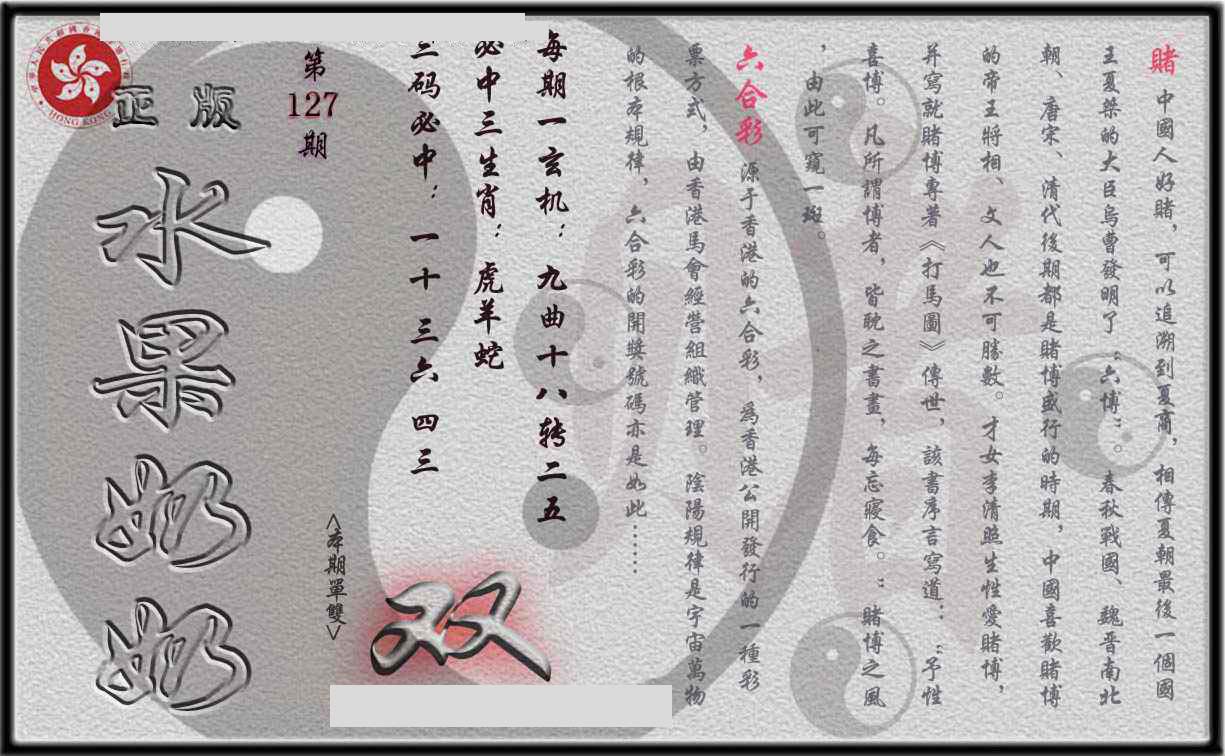 賭 中國人好賭，可以追溯到夏商，相傳夏朝最後一個國
王夏桀的大臣烏曹發明了“六博”。春秋戰國、魏晋南北
朝、唐宋、清代後期都是賭博盛行的時期，中國喜歡賭博
的帝王將相、文人也不可勝數。才女李清照生性愛賭博，
并寫就賭博專著《打馬圖》傳世，該書序言寫道：“予性
喜博。凡所謂博者，皆耽之書畫，每忘寢食。”賭博之風
，由此可窺一斑。
六合彩 源于香港的六合彩，為香港公開發行的一種彩
票方式，由香港馬會經營組織管理。陰陽規律是宇宙萬物
的根本規律，六合彩的開獎號碼亦是如此……
每期一玄机：九曲十八转二五
必中三生肖：虎羊蛇
三码必中：一十 三六 四三
第
127
期
<本期單雙>
双
正版
水果奶奶
HONG KONG